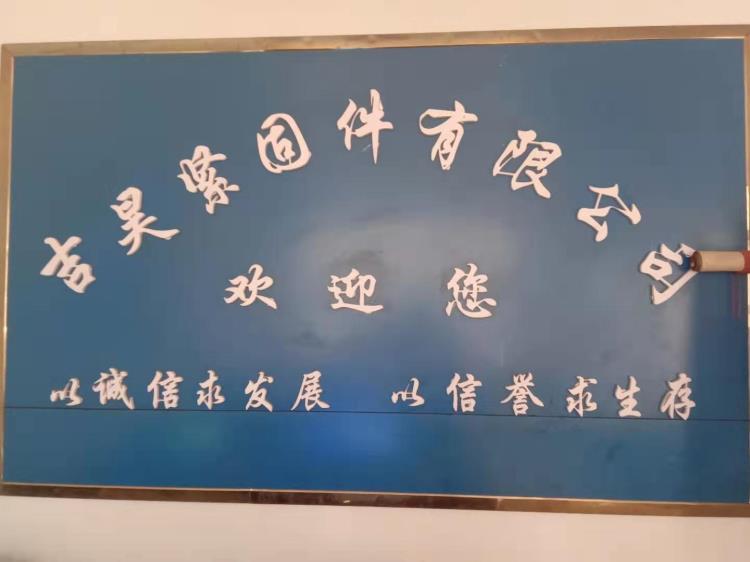 吉昊紧固件有限公司
欢迎您
以诚信求发展 以信誉求生存